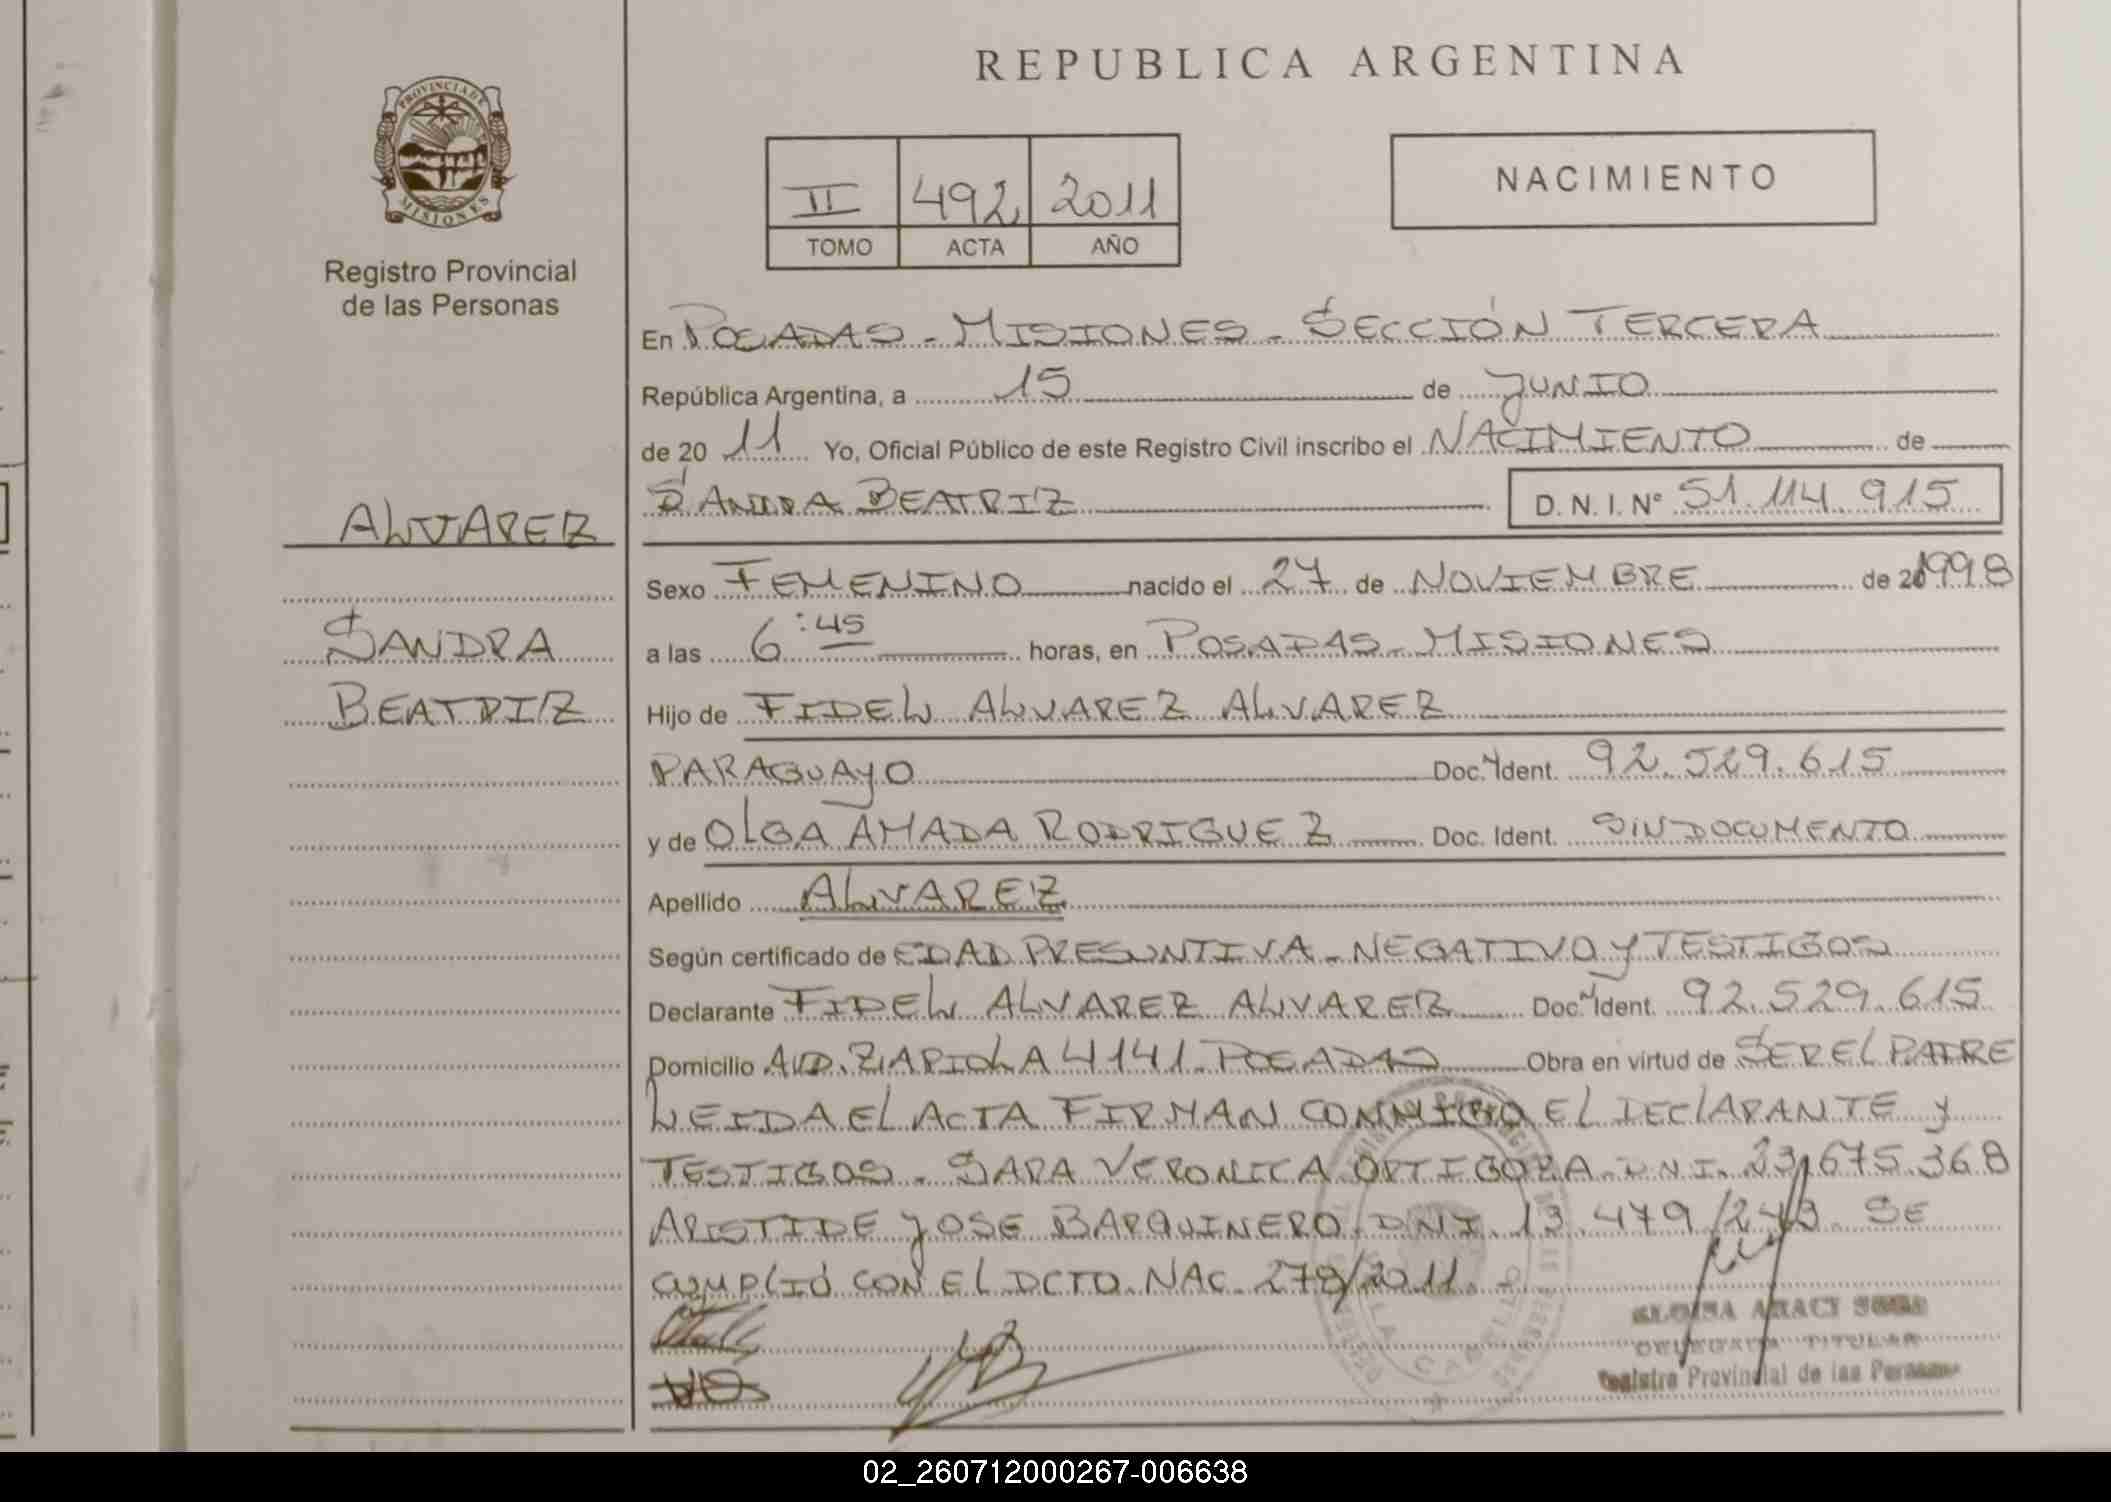 REPUBLICA ARGENTINA
PROVINCIA DE
MISIONES
Registro Provincial
de las Personas
II 492 2011
TOMO ACTA AÑO
NACIMIENTO
ALVAREZ
SANDRA
BEATRIZ
En POSADAS - MISIONES - SECCIÓN TERCERA
República Argentina, a 15 de JUNIO
de 20 11 Yo, Oficial Público de este Registro Civil inscribo el NACIMIENTO de
SANDRA BEATRIZ D. N. I. N° 51.114.915
Sexo FEMENINO nacido el 27 de NOVIEMBRE de 1998
a las 6:45 horas, en POSADAS - MISIONES
Hijo de FIDEL ALVAREZ ALVAREZ
PARAGUAYO Doc. Ident. 92.529.615
y de OLGA AMADA RODRIGUEZ Doc. Ident. SIN DOCUMENTO
Apellido ALVAREZ
Según certificado de EDAD PRESUNTIVA - NEGATIVO y TESTIGOS
Declarante FIDEL ALVAREZ ALVAREZ Doc. Ident. 92.529.615
Domicilio AVD. ZAPIOLA 4141 - POSADAS Obra en virtud de SER EL PADRE
LEIDA EL ACTA FIRMAN CONMIGO EL DECLARANTE y
TESTIGOS - SARA VERONICA ORTIGOZA - D.N.I. 23.675.368
ARISTIDE JOSE BARQUINERO. D.N.I. 13.479.243 SE
CUMPLIÓ CON EL DCTO. NAC. 278/2011. -
TITULAR
Registro Provincial de las Personas
02_260712000267-006638